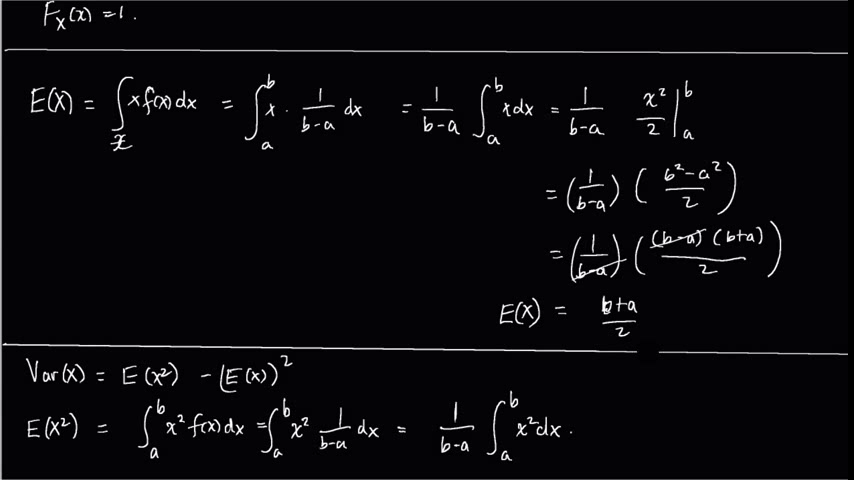 F_X(x) = 1.
E(X) = ∫_𝒳 x f(x) dx = ∫_a^b x · 1/(b-a) dx = 1/(b-a) ∫_a^b x dx = 1/(b-a) x²/2 |_a^b
= (1/(b-a)) ((b² - a²)/2)
= (1/(b-a)) ((b-a)(b+a)/2)
E(X) = (b+a)/2
Var(X) = E(X²) - (E(X))²
E(X²) = ∫_a^b x² f(x) dx = ∫_a^b x² 1/(b-a) dx = 1/(b-a) ∫_a^b x² dx.